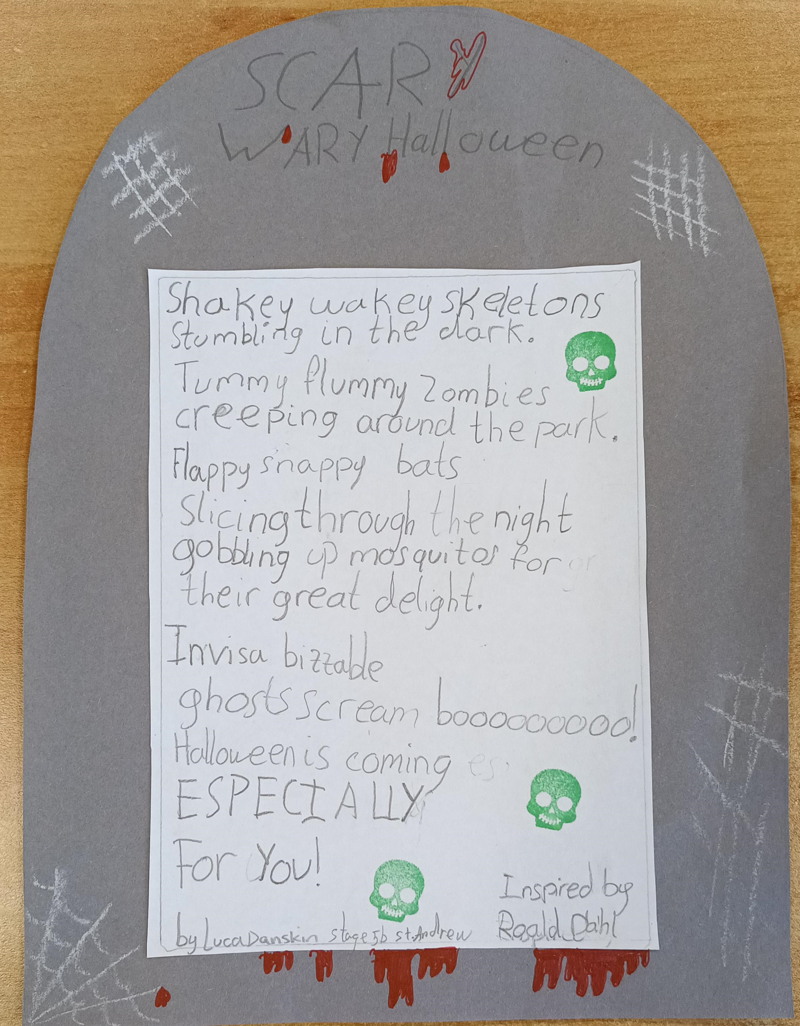 SCARY
WARY Halloween
Shakey wakey skeletons
Stumbling in the dark.
Tummy flummy Zombies
creeping around the park.
Flappy snappy bats
Slicing through the night
gobbling up mosquitos for
their great delight.
Invisa bizzable
ghosts scream booooooooo!
Halloween is coming
ESPECIALLY
For You!
Inspired by
Roald Dahl
by Luca Danskin Stage 5b St. Andrew